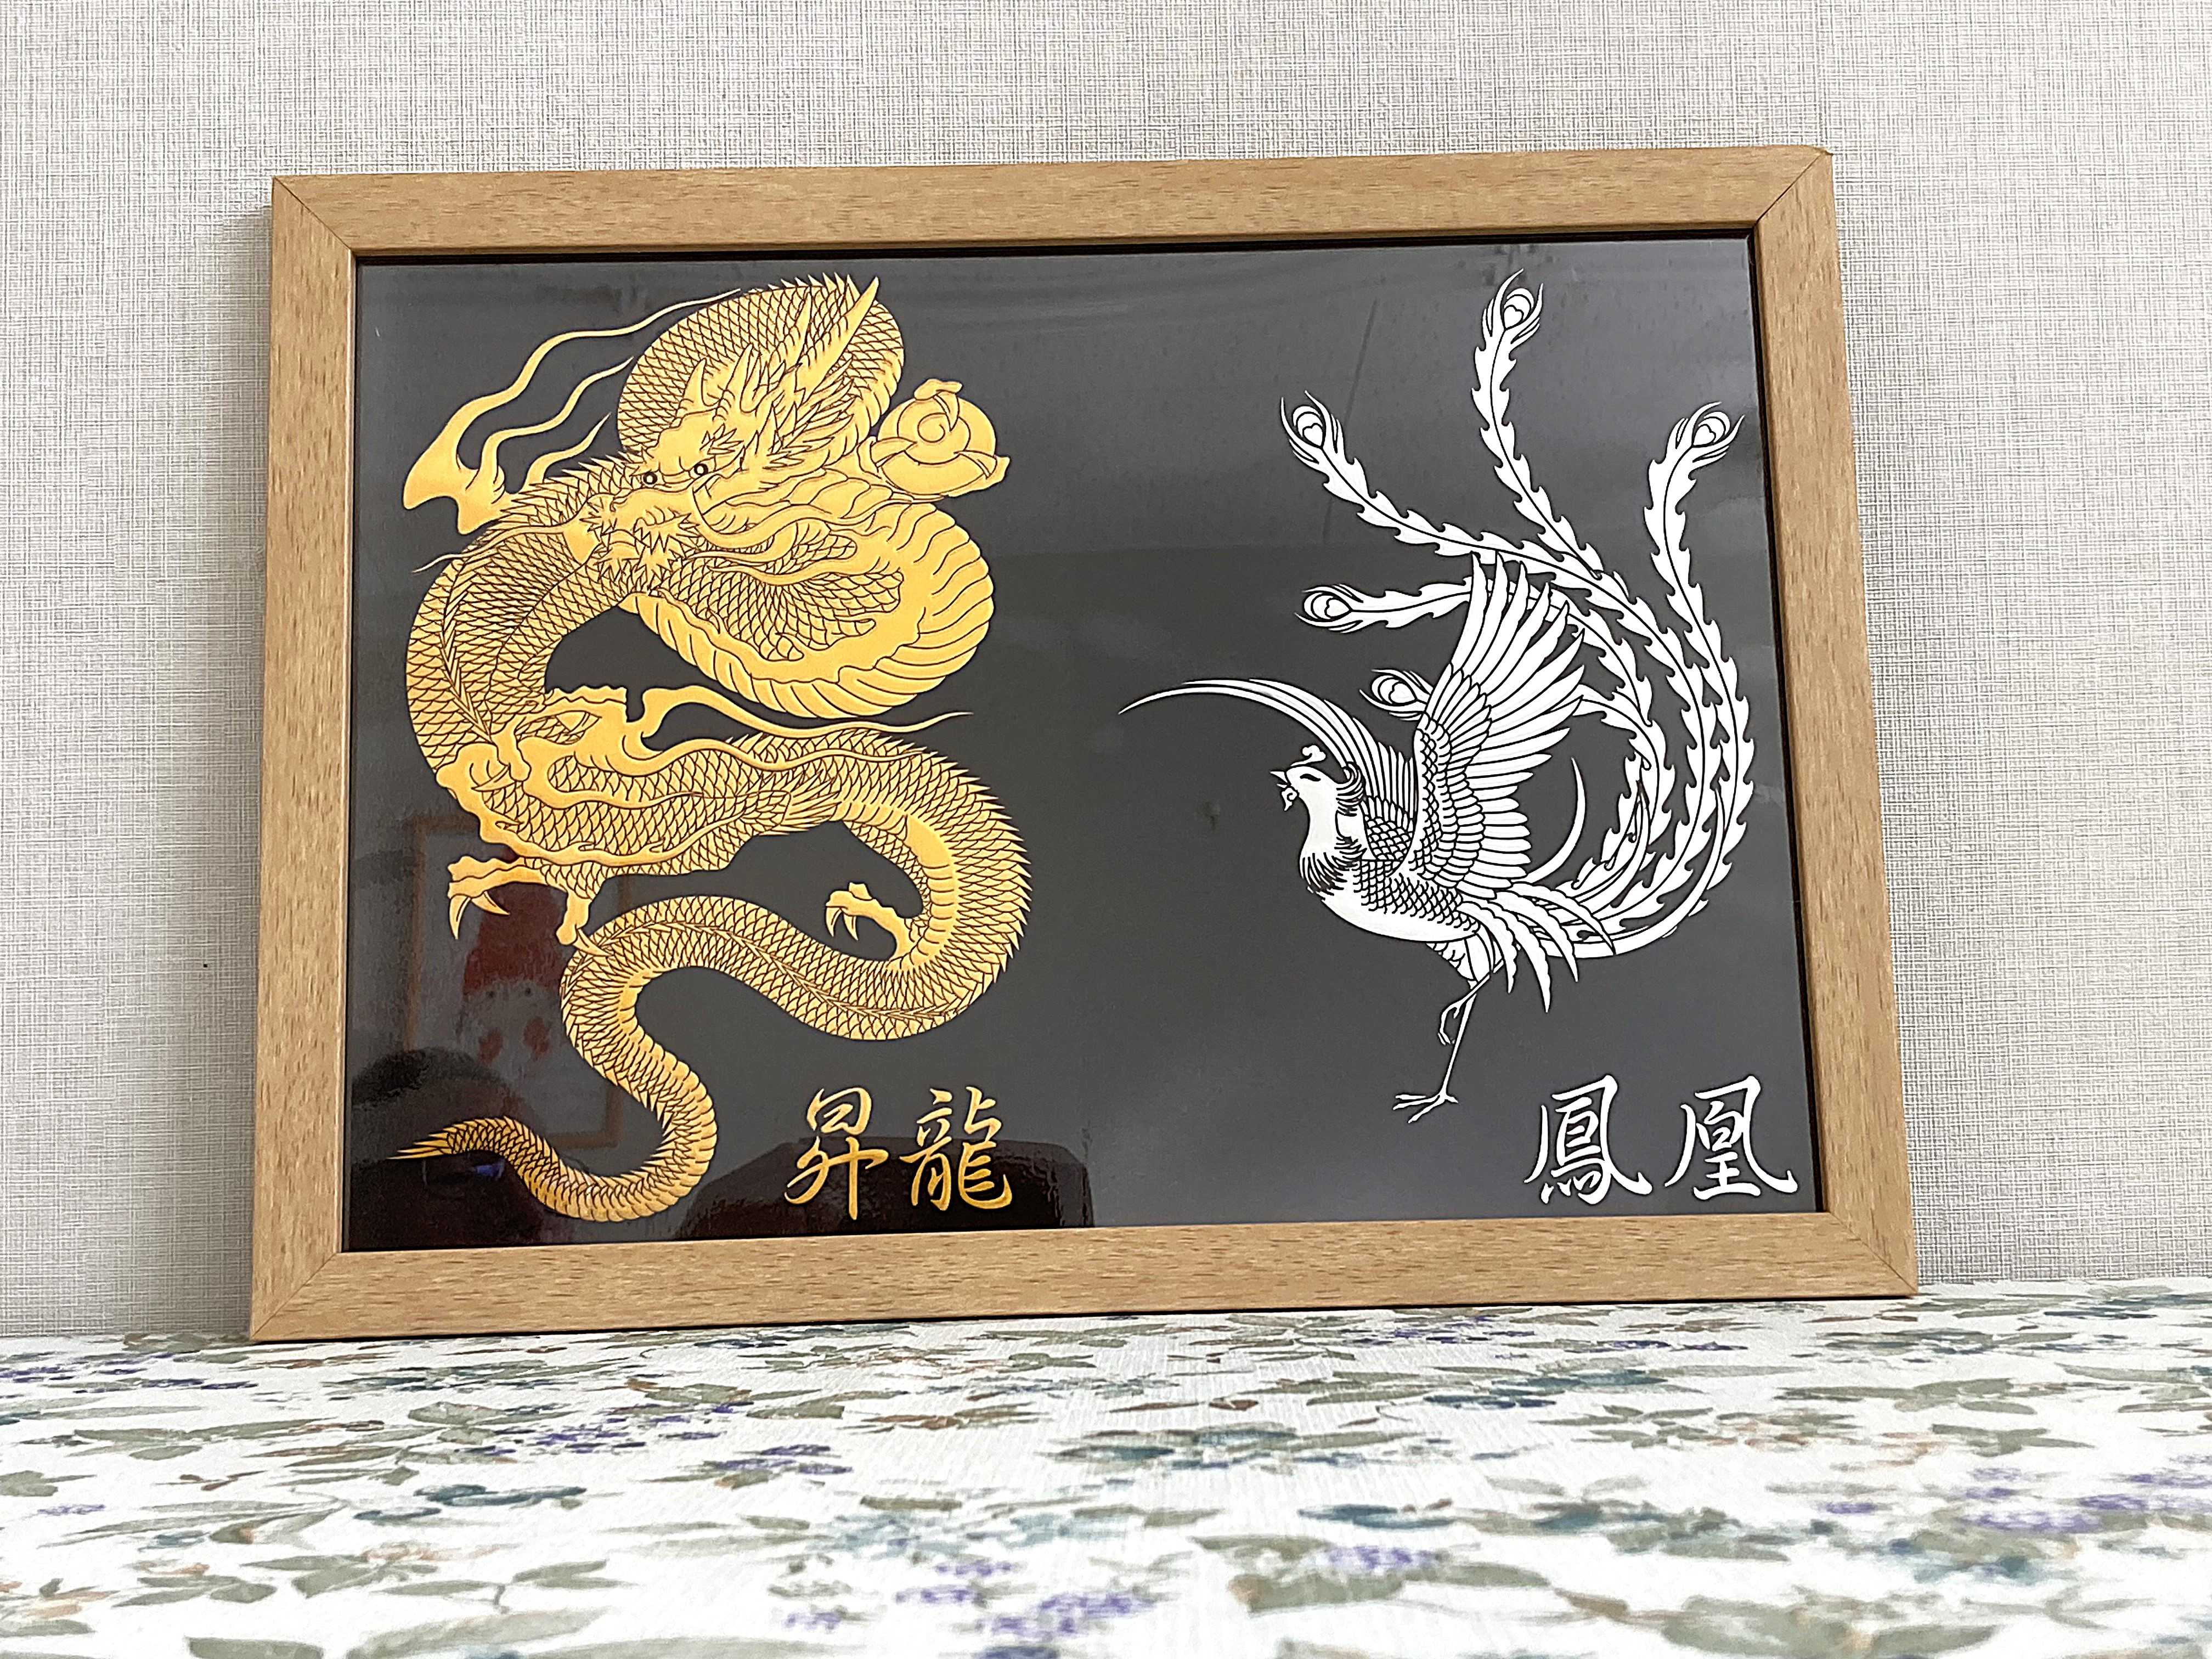 昇龍
鳳凰